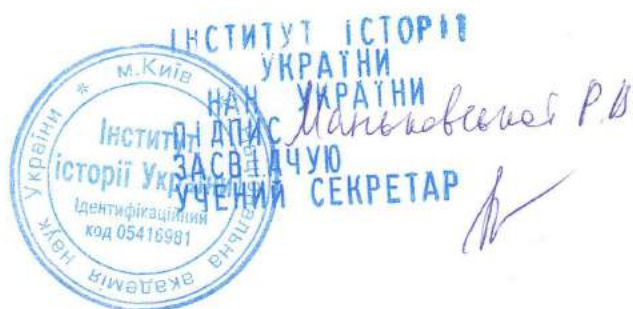 ІНСТИТУТ ІСТОРІЇ
УКРАЇНИ
НАН УКРАЇНИ
ПІДПИС Маньковської Р.В
ЗАСВІДЧУЮ
УЧЕНИЙ СЕКРЕТАР
* м.Київ * Національна академія наук України
Інститут
історії України
Ідентифікаційний
код 05416981